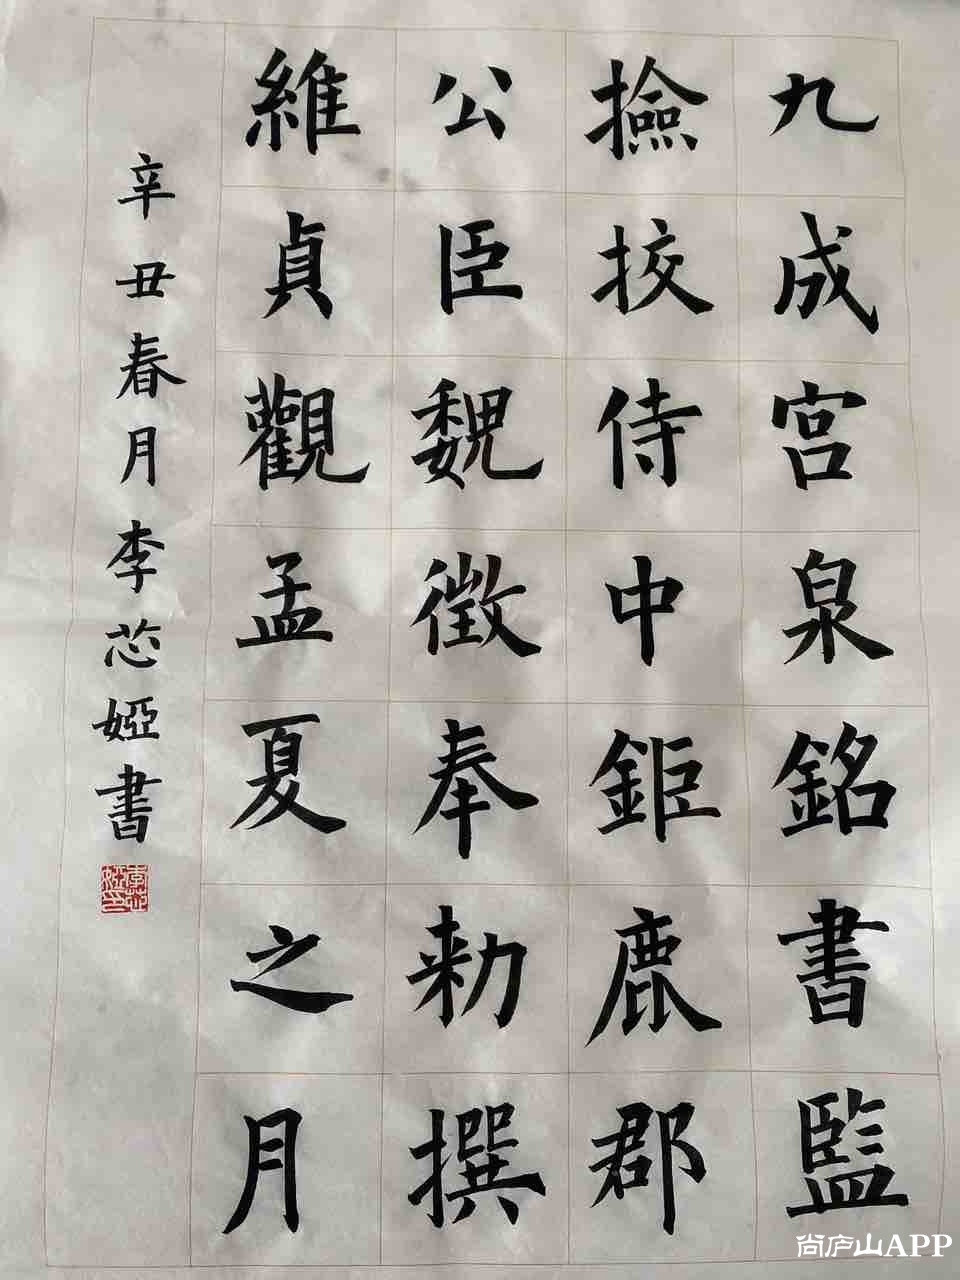 九成宫泉銘書監
撿挍侍中鉅鹿郡
公臣魏徵奉勑撰
維貞觀孟夏之月
辛丑春月李芯婭書
李芯婭印
尚庐山APP